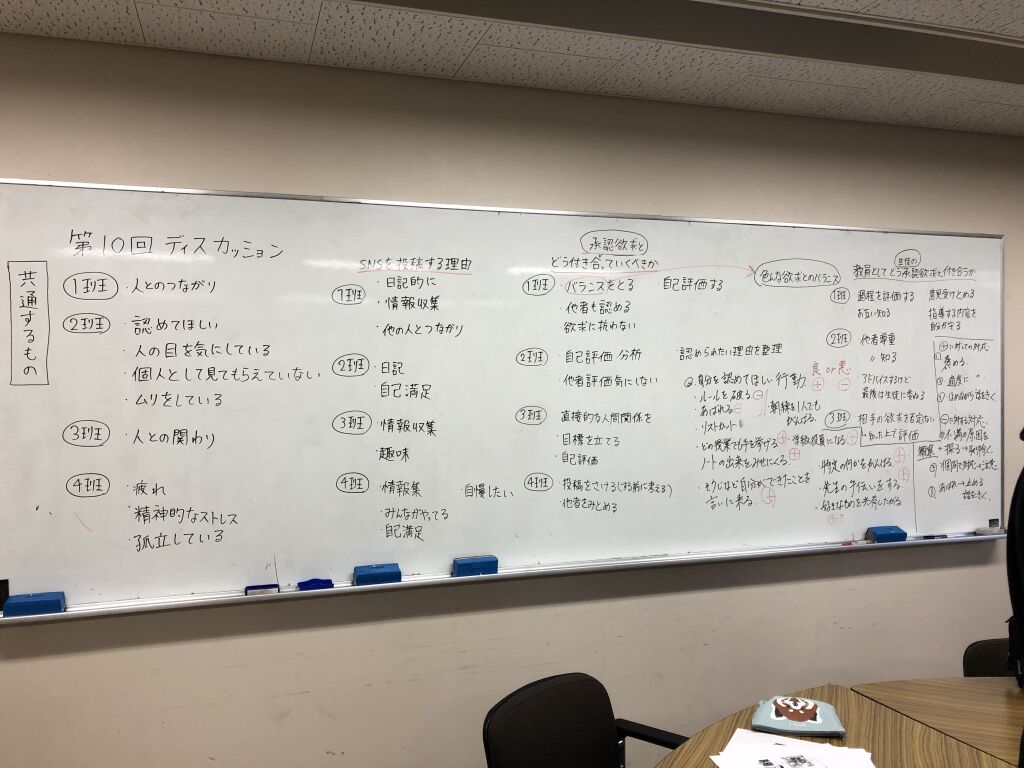 第10回 ディスカッション
共通するもの
1班 ・人とのつながり
2班 ・認めてほしい
・人の目を気にしている
・個人として見てもらえていない
・ムリをしている
3班 ・人との関わり
4班 ・疲れ
・精神的なストレス
・孤立している
SNSを投稿する理由
1班 ・日記的に
・情報収集
・他の人とつながり
2班 ・日記
・自己満足
3班 ・情報収集
・趣味
4班 ・情報集 ・自慢したい
・みんながやってる
・自己満足
承認欲求と
どう付き合っていくべきか
1班 ・バランスをとる ・自己評価する
・他者も認める
欲求に抗わない
2班 ・自己評価 分析 ・認められたい理由を整理
・他者評価気にしない
3班 ・直接的な人間関係を
・目標を立てる
・自己評価
4班 ・投稿をさける(する前に考える)
・他者をみとめる
色んな欲求とのバランス
良 or 悪
⊕ ⊖
自分を認めてほしい行動
・ルールを破る ⊖
・あばれる ⊖
・リストカット
朝練を1人でも
がんばる
・どの授業でも手を挙げる ⊕ ・学級役員になる ⊕
・ノートの出来をみせにくる ⊕
・そうじなど自分ができたことを
言いに来る ⊕
・特定の何かをがんばる ⊕
・先生の手伝いをする ⊕
生徒の
教員としてどう承認欲求と付き合うか
1班 過程を評価する 意見受けとめる
お互い知る 指導する内容を
2班 他者尊重
〃 知る
アドバイスするけど
最後は生徒に委ねる
3班 相手の欲求を否定しない
⊕に対しての対応
褒める
⊖に対する対応
不満の原因を